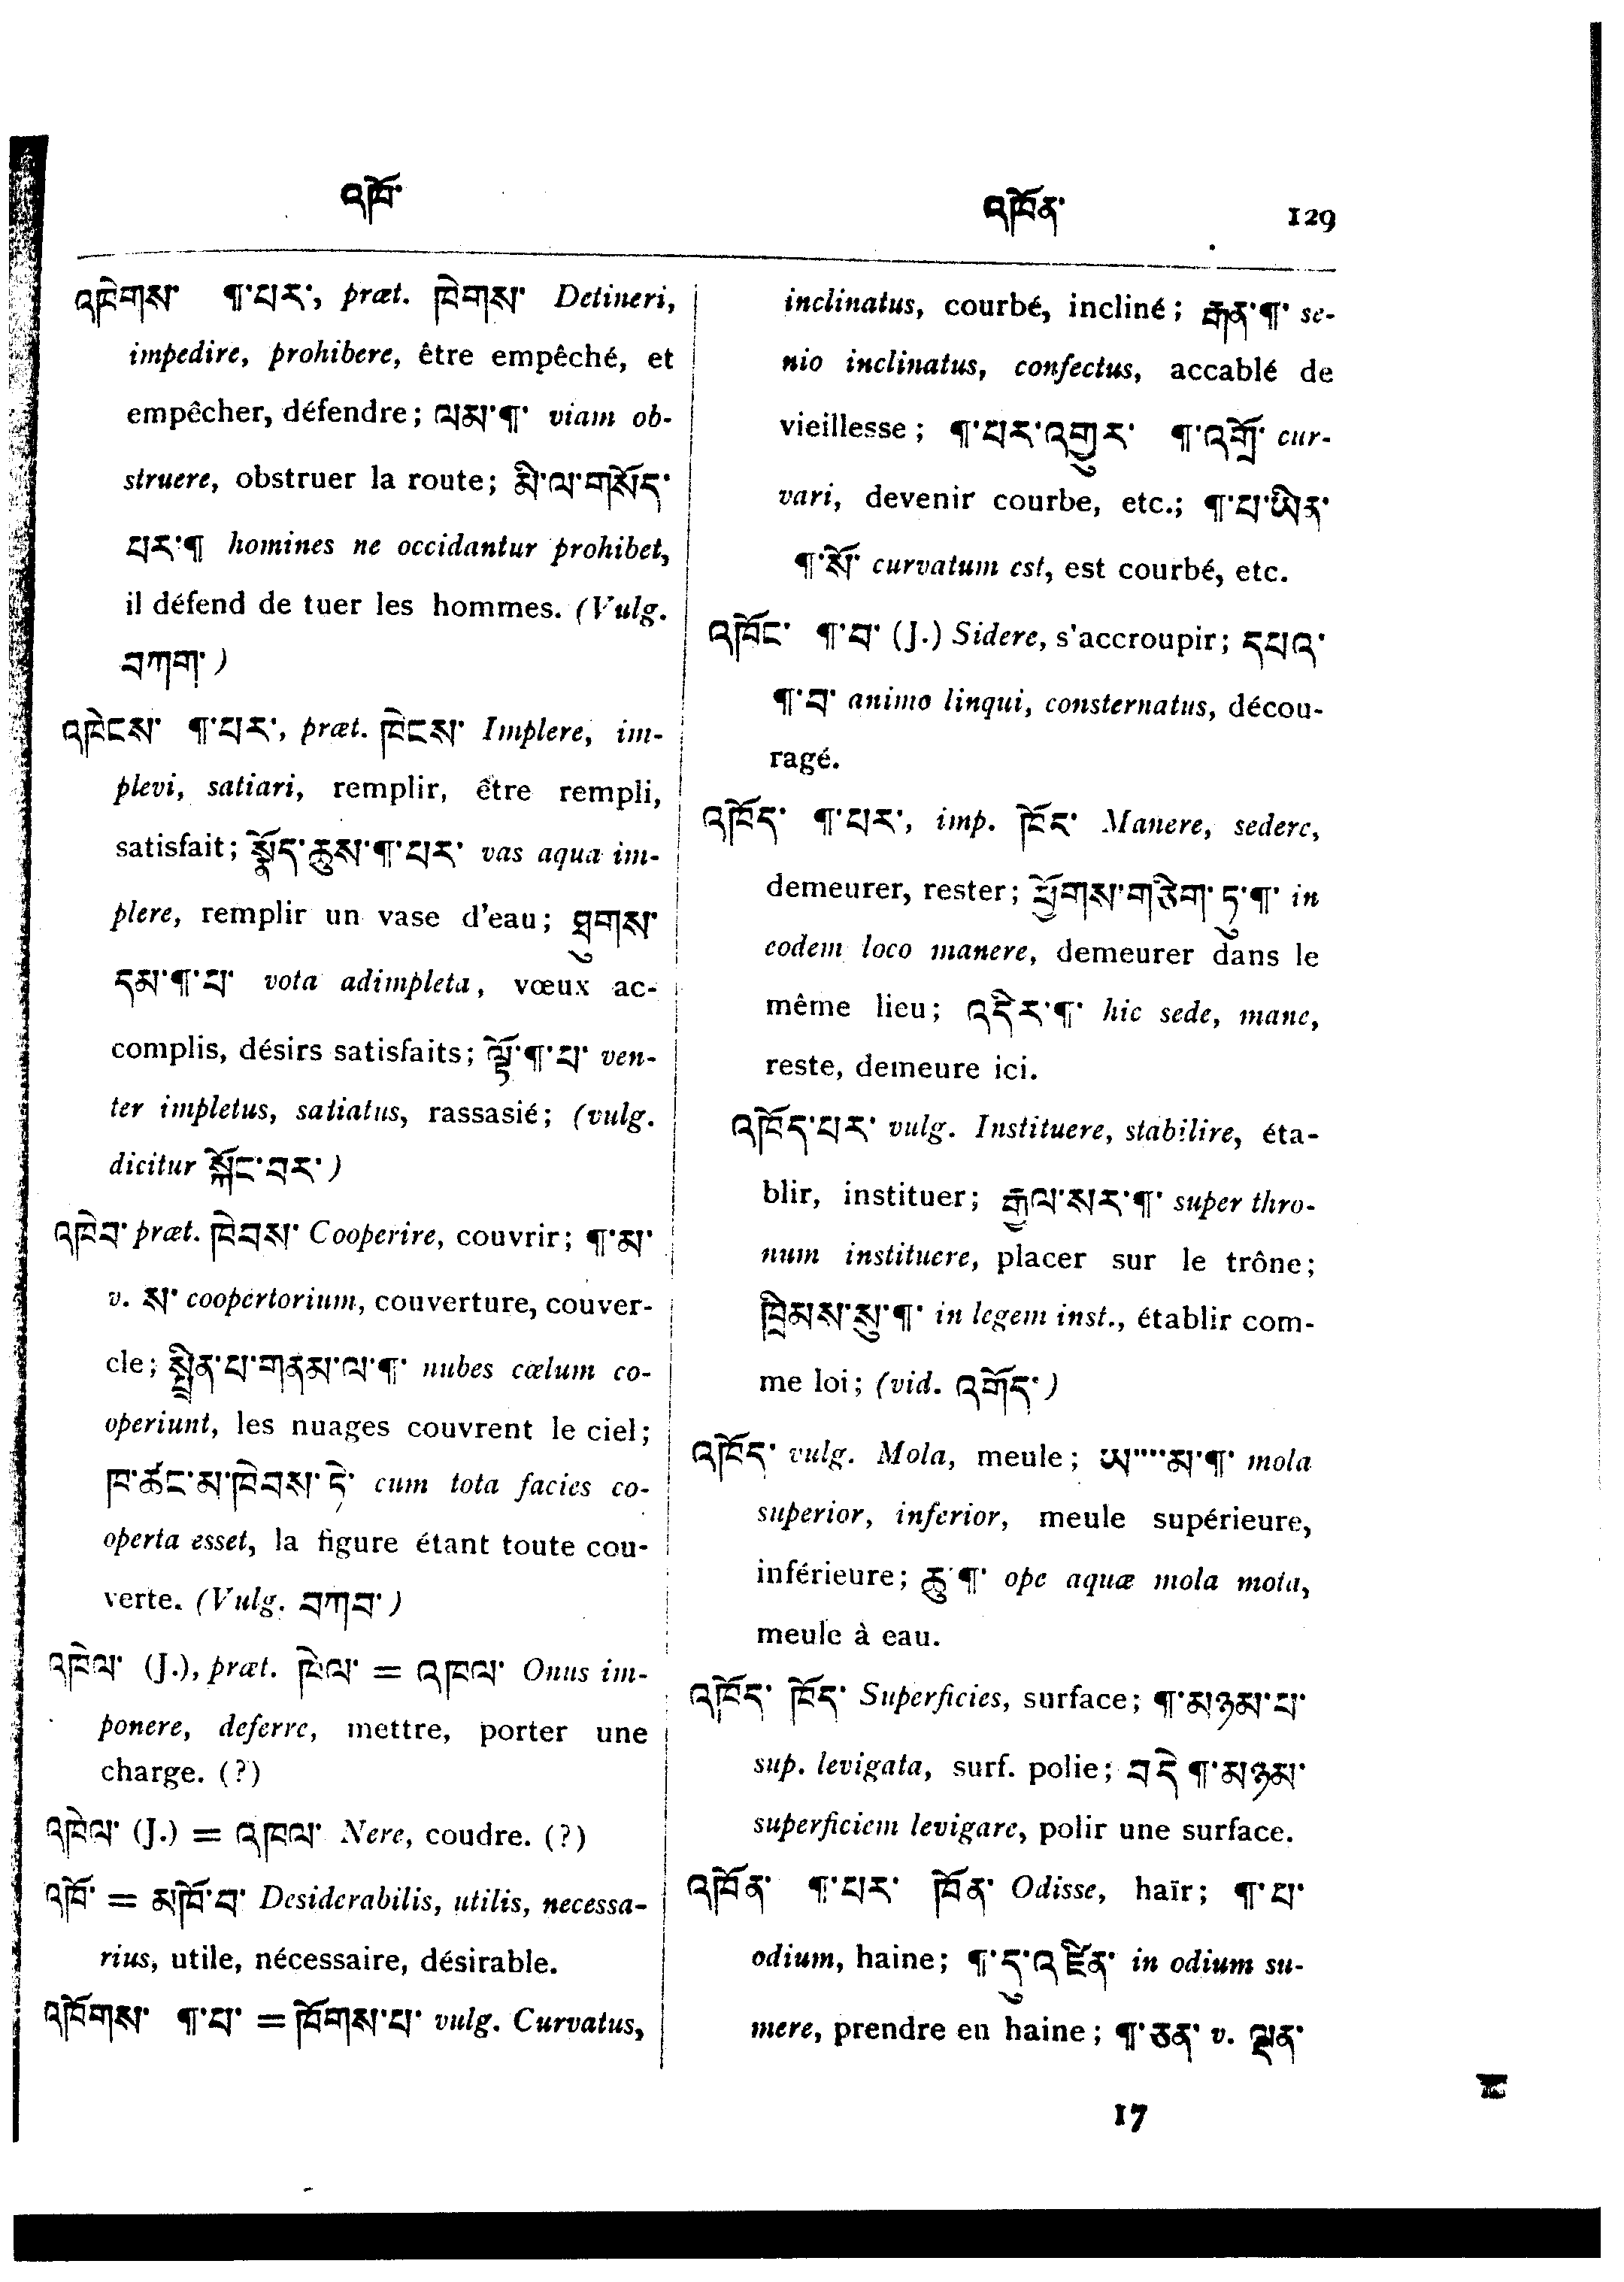 འཁོ་
འཁོན་ 129
འཁེགས་ ¶་པར་, præt. ཁེགས་ Detineri,
impedire, prohibere, être empêché, et
empêcher, défendre; ལམ་¶་ viam ob-
struere, obstruer la route; མི་ལ་གསོད་
པར་¶ homines ne occidantur prohibet,
il défend de tuer les hommes. (Vulg.
བཀག་)
འཁེངས་ ¶་པར་, præt. ཁེངས་ Implere, im-
plevi, satiari, remplir, être rempli,
satisfait; སྣོད་ཆུས་¶་པར་ vas aqua im-
plere, remplir un vase d'eau; ཐུགས་
དམ་¶་པ་ vota adimpleta, vœux ac-
complis, désirs satisfaits; ལྟོ་¶་པ་ ven-
ter impletus, satiatus, rassasié; (vulg.
dicitur སྐོང་བར་)
འཁེབ་ præt. ཁེབས་ Cooperire, couvrir; ¶་མ་
v. ས་ coopertorium, couverture, couver-
cle; སྤྲིན་པ་གནམ་ལ་¶་ nubes cælum co-
operiunt, les nuages couvrent le ciel;
ཁ་ཚང་མ་ཁེབས་ཏེ་ cum tota facies co-
operta esset, la figure étant toute cou-
verte. (Vulg. བཀབ་)
འཁེལ་ (J.), præt. ཁེལ་ = འཁལ་ Onus im-
ponere, deferre, mettre, porter une
charge. (?)
འཁེལ་ (J.) = འཁལ་ Nere, coudre. (?)
འཁོ་ = མཁོ་བ་ Desiderabilis, utilis, necessa-
rius, utile, nécessaire, désirable.
འཁོགས་ ¶་པ་ = ཁོགས་པ་ vulg. Curvatus,
inclinatus, courbé, incliné; རྒན་¶་ se-
nio inclinatus, confectus, accablé de
vieillesse; ¶་པར་འགྱུར་ ¶་འགྲོ་ cur-
vari, devenir courbe, etc.; ¶་པ་ཡིན་
¶་སོ་ curvatum est, est courbé, etc.
འཁོང་ ¶་བ་ (J.) Sidere, s'accroupir; དཔའ་
¶་བ་ animo linqui, consternatus, décou-
ragé.
འཁོད་ ¶་པར་, imp. ཁོད་ Manere, sedere,
demeurer, rester; ཕྱོགས་གཅིག་ཏུ་¶་ in
eodem loco manere, demeurer dans le
même lieu; འདིར་¶་ hic sede, mane,
reste, demeure ici.
འཁོད་པར་ vulg. Instituere, stabilire, éta-
blir, instituer; རྒྱལ་སར་¶་ super thro-
num instituere, placer sur le trône;
ཁྲིམས་སུ་¶་ in legem inst., établir com-
me loi; (vid. འགོད་)
འཁོད་ vulg. Mola, meule; ཡ་""་མ་¶་ mola
superior, inferior, meule supérieure,
inférieure; ཆུ་¶་ ope aquæ mola mota,
meule à eau.
འཁོད་ ཁོད་ Superficies, surface; ¶་མཉམ་པ་
sup. levigata, surf. polie; བདེ་¶་མཉམ་
superficiem levigare, polir une surface.
འཁོན་ ¶་པར་ ཁོན་ Odisse, haïr; ¶་པ་
odium, haine; ¶་དུ་འཛིན་ in odium su-
mere, prendre en haine; ¶་ཅན་ v. ལྡན་
17